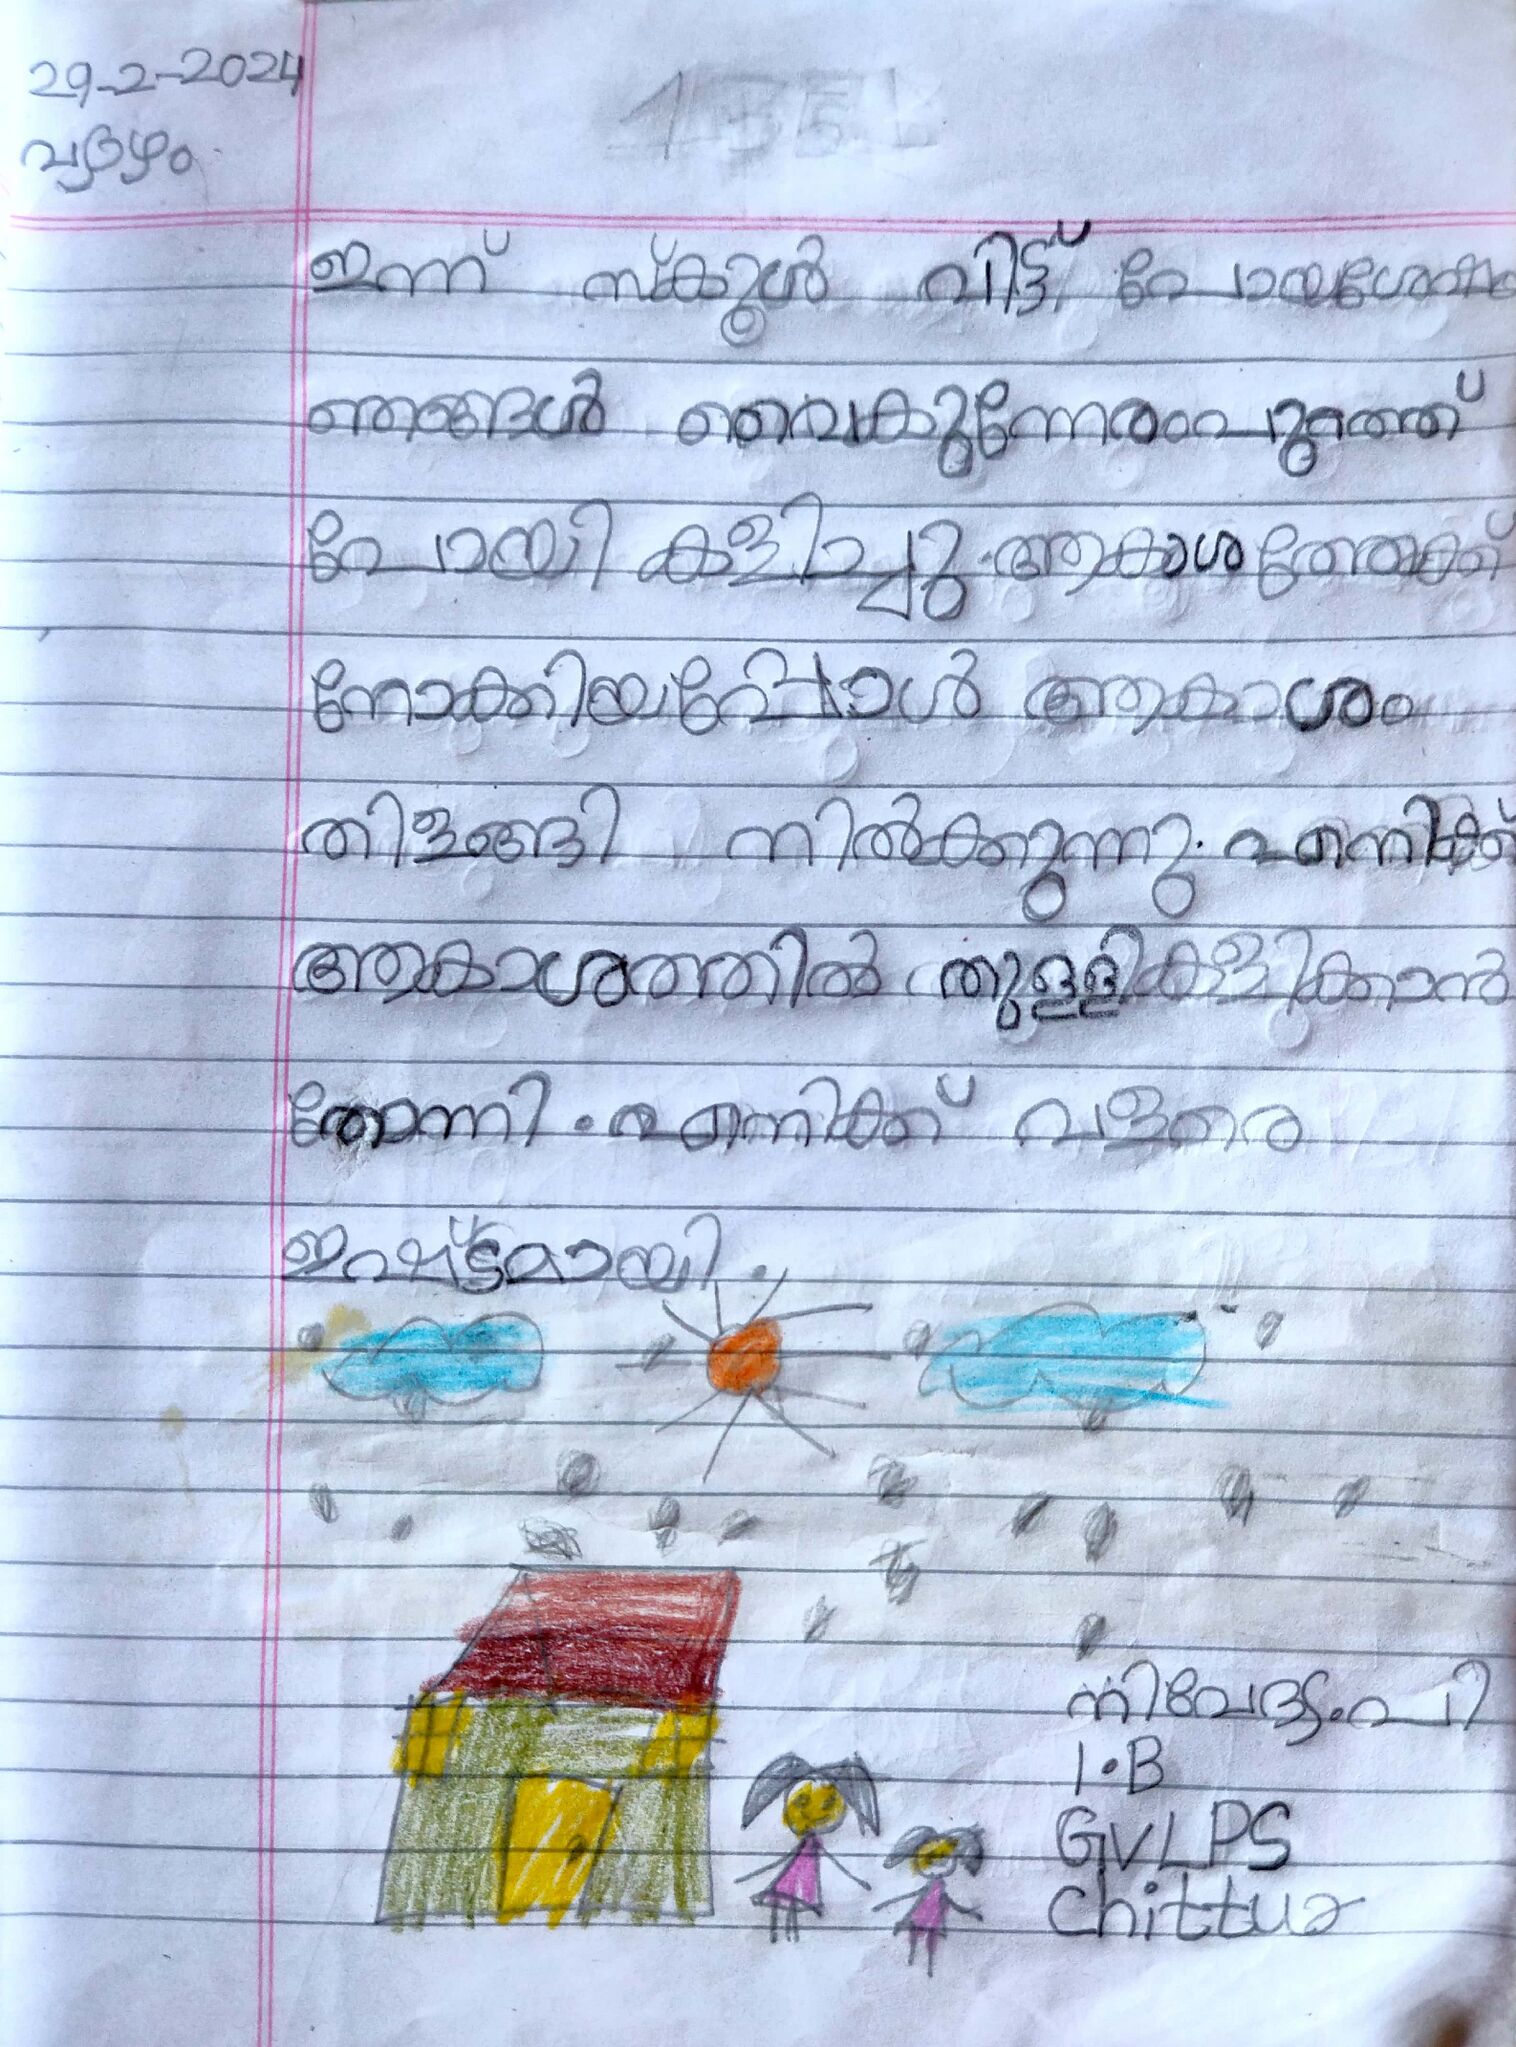 29-2-2024
വ്യാഴം
ഇന്ന് സ്കൂൾ വിട്ട് പോയശേഷം
ഞങ്ങൾ വൈകുന്നേരം പുറത്ത്
പോയി കളിച്ചു. ആകാശത്തേക്ക്
നോക്കിയപ്പോൾ ആകാശം
തിളങ്ങി നിൽക്കുന്നു. എനിക്ക്
ആകാശത്തിൽ തുള്ളികളിക്കാൻ
തോന്നി. എനിക്ക് വളരെ
ഇഷ്ട്ടമായി.
നിവേദ്യ. പി
1.B
GVLPS
Chittur